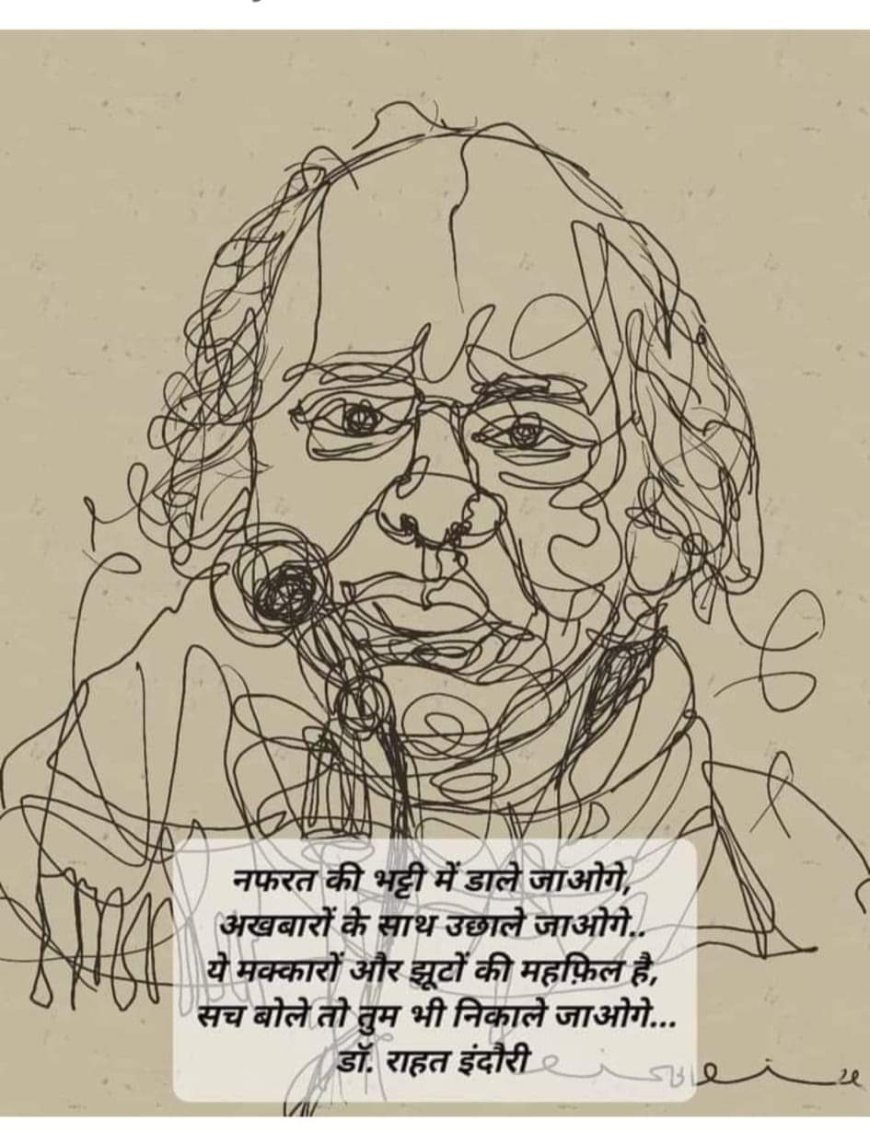 नफरत की भट्टी में डाले जाओगे,
अखबारों के साथ उछाले जाओगे..
ये मक्कारों और झूटों की महफ़िल है,
सच बोले तो तुम भी निकाले जाओगे...
डॉ. राहत इंदौरी